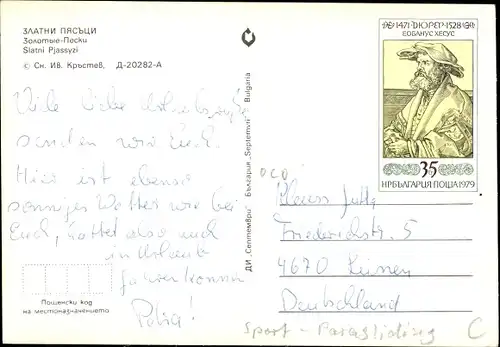 ЗЛАТНИ ПЯСЪЦИ
Золотые-Пески
Slatni Pjassyzi
© Сн. Ив. Кръстев, Д-20282-А
Viele liebe
senden wir Euch.
Hier ist ebenso
sonniges Wetter wie bei
Euch, hättet also auch
in Urlaub
fahren können
Пощенски код
на местоназначението
ДИ „Септември" България "Septemvri" Bulgaria
1471 ДЮРЕР 1528
ЕОБАНУС ХЕСУС
35
НР БЪЛГАРИЯ ПОЩА 1979
Jutta
Friedrichstr. 5
4670 Lünen
Deutschland
Sport - Paragliding
C